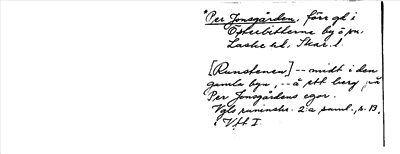 "Per Jonsgården, förr gd i
Österbitterna by o. sn,
Laske hd, Skar. l.
[Runstenen] -- midt i den
gamla byn, -- å ett berg på
Per Jonsgårdens egor.
Vgls runinskr. 2:a saml., s. 13,
i VFT I.